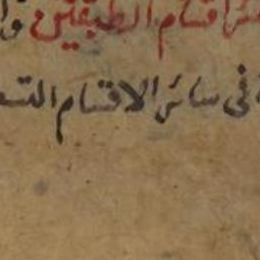 اقسام الطبقتين
فى سائر الاقسام